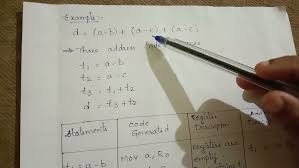 Example:-
d = (a-b) + (a-c) + (a-c)
→ Three address code
t₁ = a-b
t₂ = a-c
t₃ = t₁+t₂
d = t₃+t₂
Statements | code Generated | Register Descriptor
t₁ = a-b | Mov a, R₀ | Registers are empty